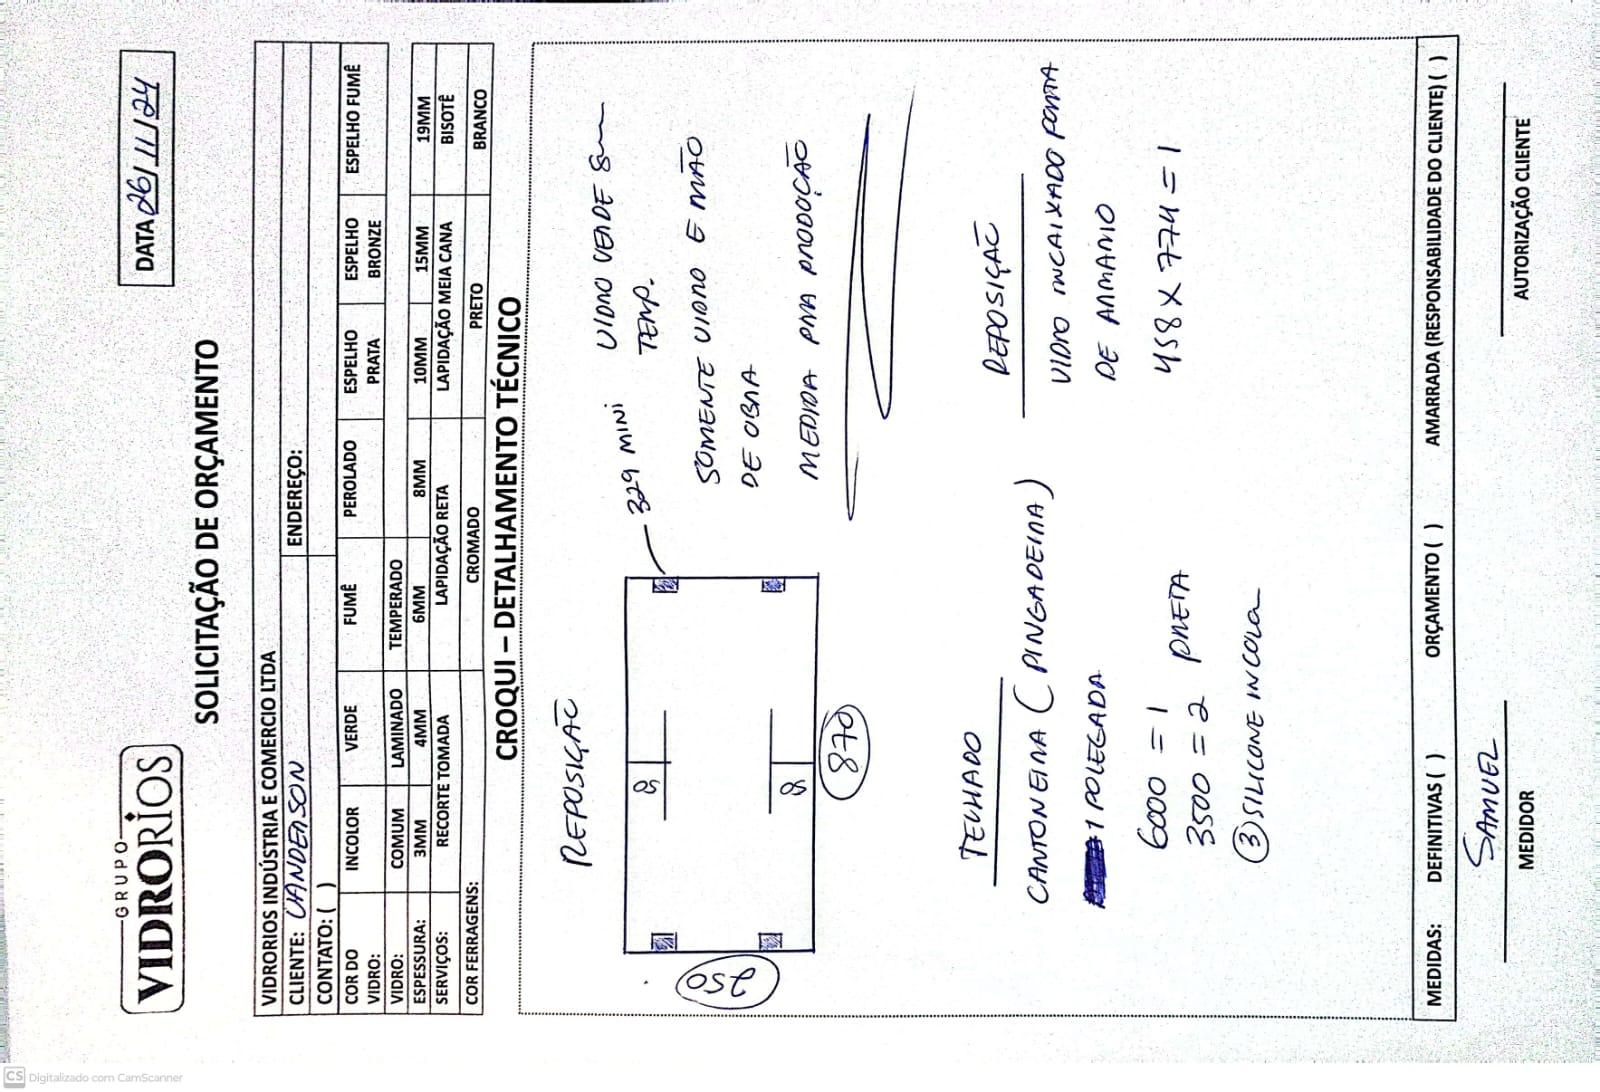 GRUPO
VIDRORIOS
DATA 26/11/24
SOLICITAÇÃO DE ORÇAMENTO
VIDRORIOS INDÚSTRIA E COMERCIO LTDA
CLIENTE: VANDERSON ENDEREÇO:
CONTATO: ( )
COR DO VIDRO: INCOLOR VERDE FUMÊ PEROLADO ESPELHO PRATA ESPELHO BRONZE ESPELHO FUMÊ
VIDRO: COMUM LAMINADO TEMPERADO
ESPESSURA: 3MM 4MM 6MM 8MM 10MM 15MM 19MM
SERVIÇOS: RECORTE TOMADA LAPIDAÇÃO RETA LAPIDAÇÃO MEIA CANA BISOTÊ
COR FERRAGENS: CROMADO PRETO BRANCO
CROQUI – DETALHAMENTO TÉCNICO
REPOSIÇÃO
329 MINI
VIDRO VERDE 8mm
TEMP.
50
50
250
870
SOMENTE VIDRO E MÃO
DE OBRA
MEDIDA PRA PRODUÇÃO
TELHADO
CANTONEIRA (PINGADEIRA)
1 POLEGADA
6000 = 1
3500 = 2 PRETA
3 SILICONE INCOLOR
REPOSIÇÃO
VIDRO INCAIXADO PORTA
DE ARMARIO
458 X 774 = 1
MEDIDAS: DEFINITIVAS ( ) ORÇAMENTO ( ) AMARRADA (RESPONSABILIDADE DO CLIENTE) ( )
SAMUEL
MEDIDOR
AUTORIZAÇÃO CLIENTE
CS Digitalizado com CamScanner